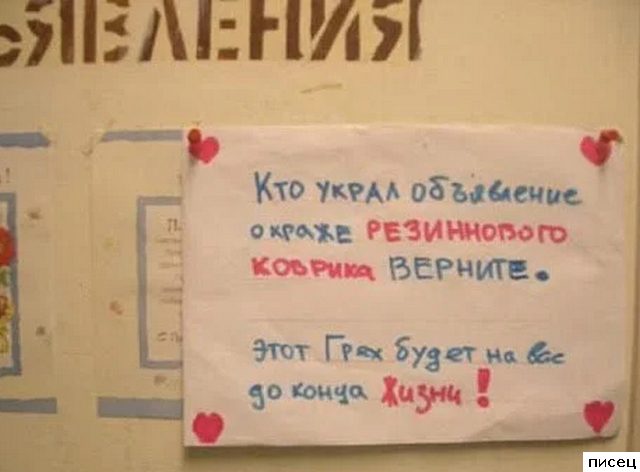 ЯВЛЕНИЯ
Кто украл объявление
о краже РЕЗИННОВОГО
коврика ВЕРНИТЕ.
этот Грех будет на вас
до конца Жизни!
писец